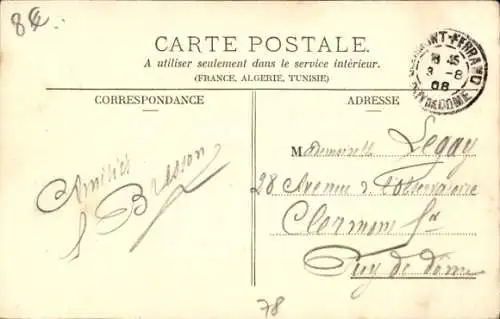 8€
CARTE POSTALE.
A utiliser seulement dans le service intérieur.
(FRANCE, ALGERIE, TUNISIE)
CLERMONT-FERRAND
18 45
3 - 8
08
PUY DE DOME
CORRESPONDANCE
ADRESSE
Amitiés
Bresson
Mademoiselle Legay
28 Avenue d l'observatoire
Clermont Fd
Puy de dôme
78